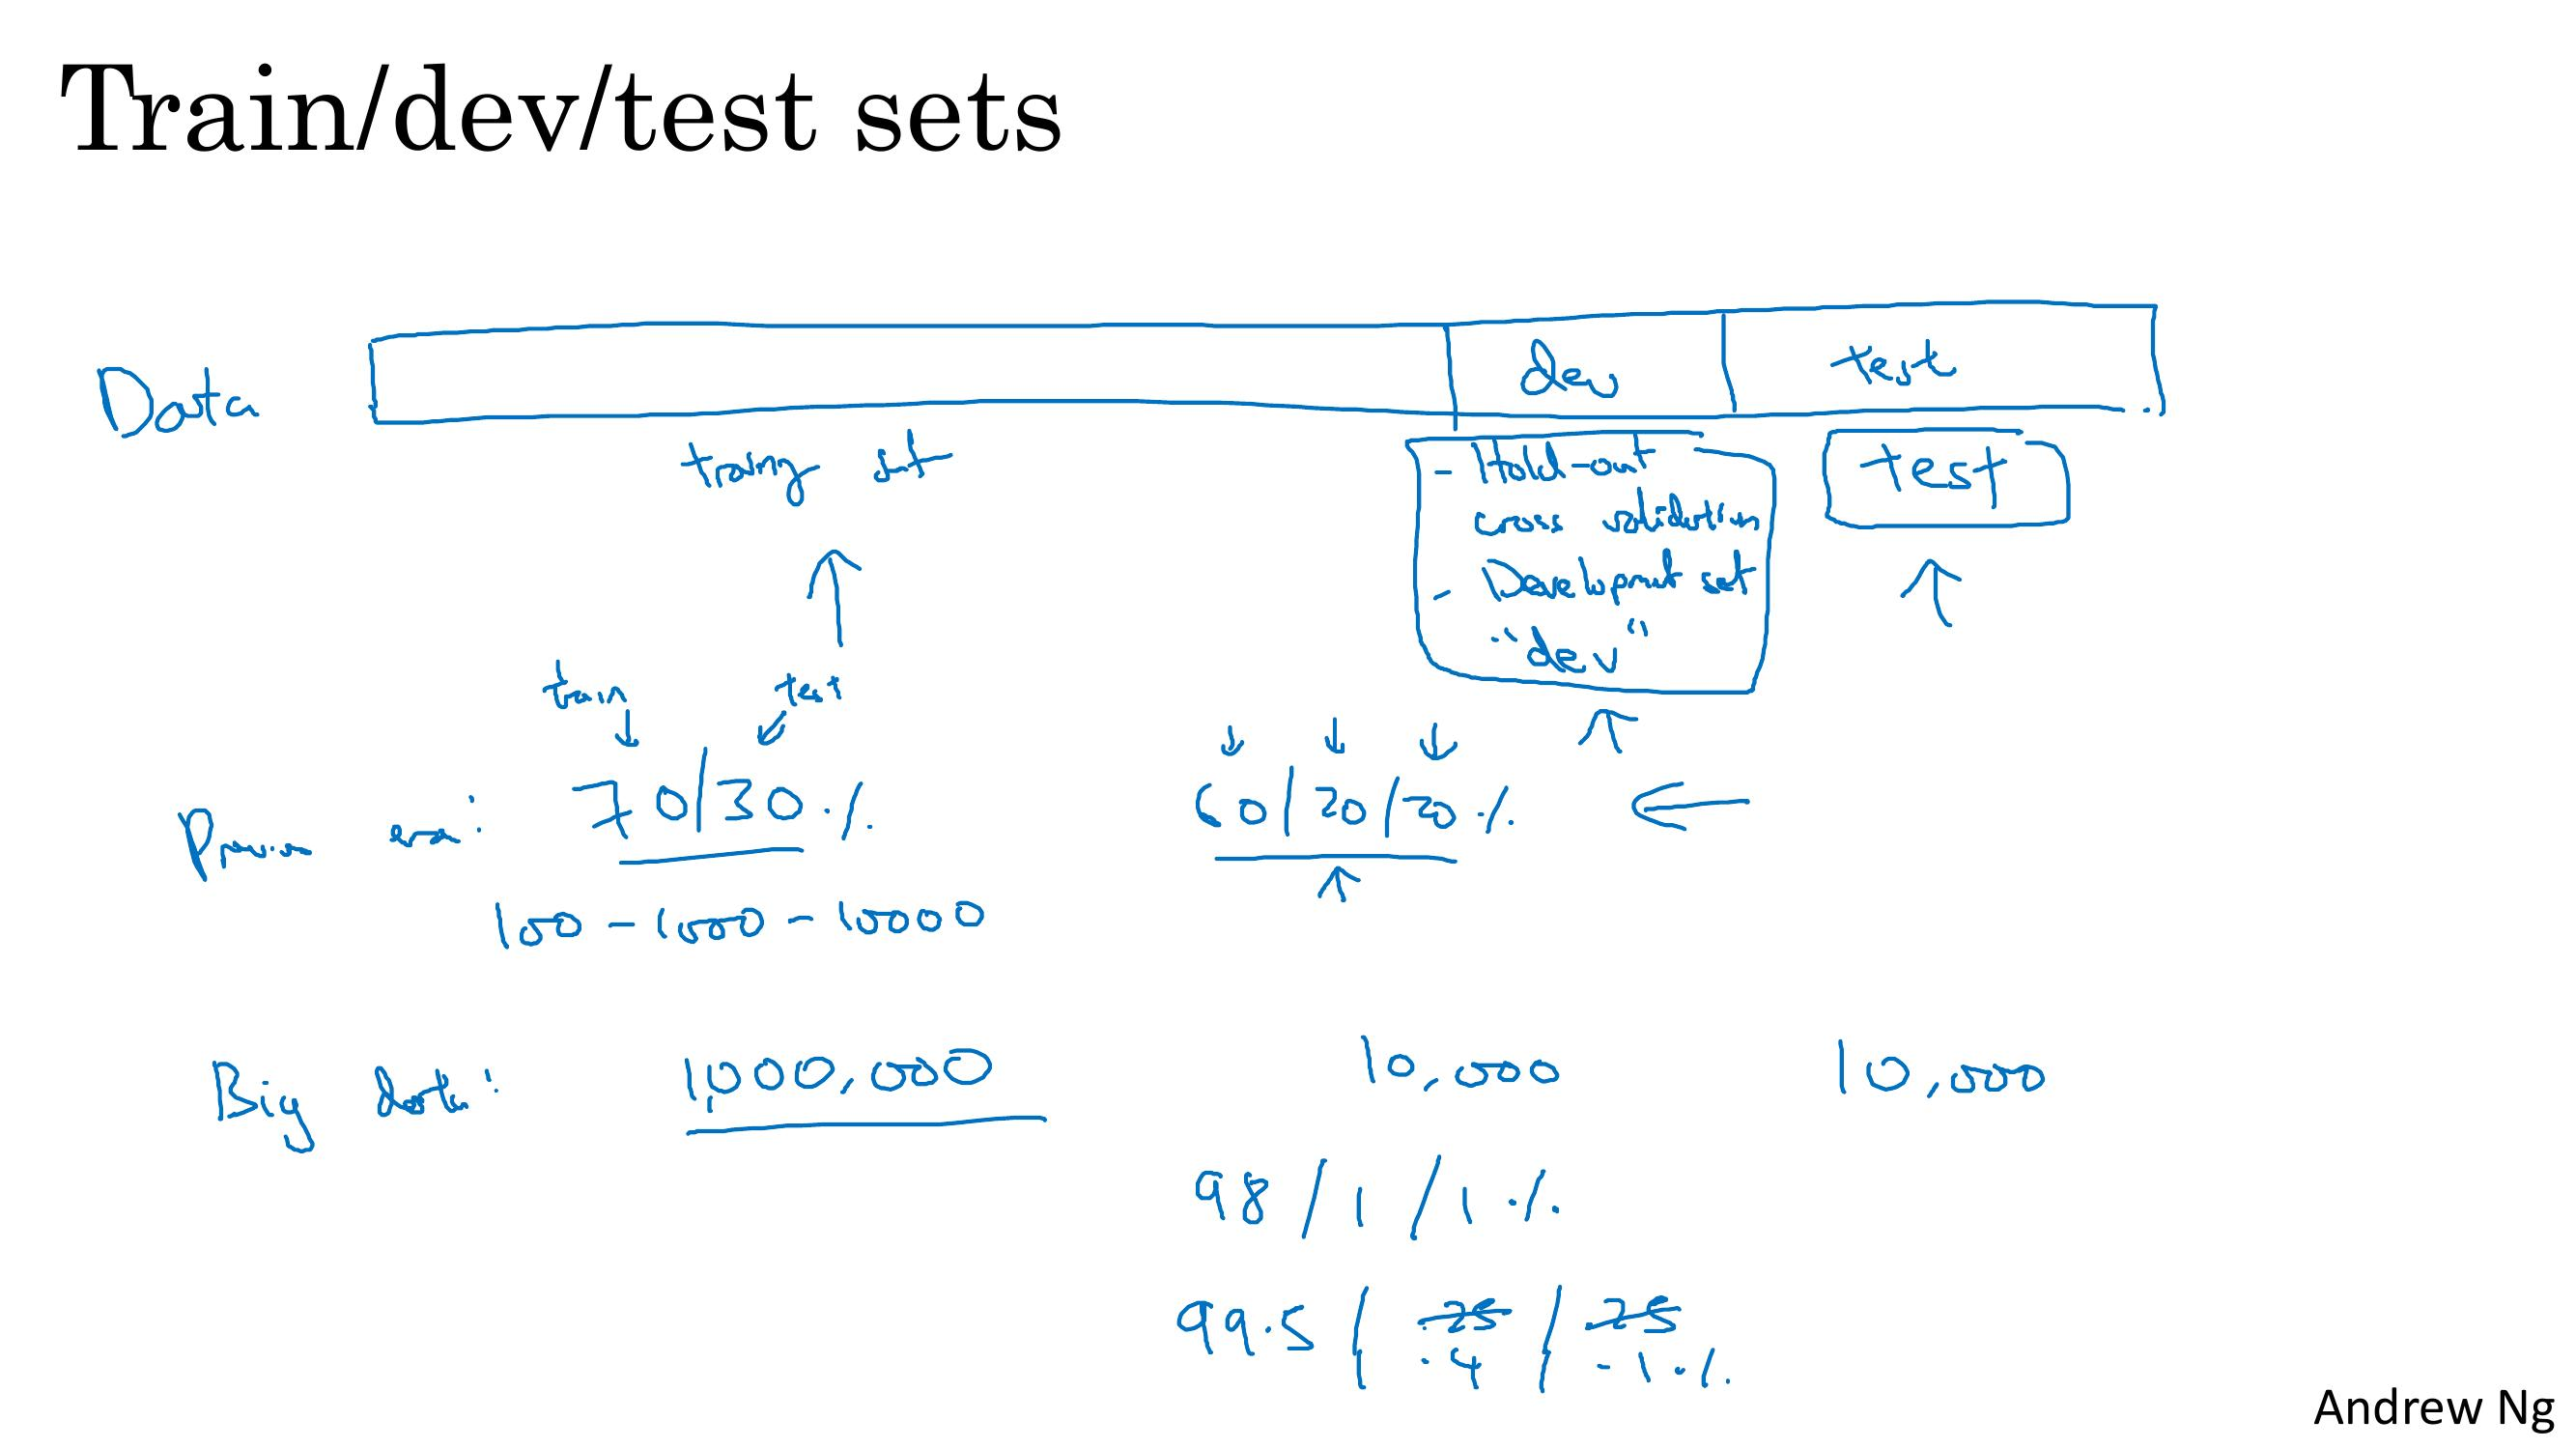 Train/dev/test sets
Data dev test
training set
- Hold-out
cross validation
- Development set
"dev"
test
train test
Previous era: 70/30 % 60/20/20 %
100 - 1000 - 10000
Big data: 1,000,000 10,000 10,000
98 / 1 / 1 %
99.5 / .25 / .25
.4 .1 %
Andrew Ng